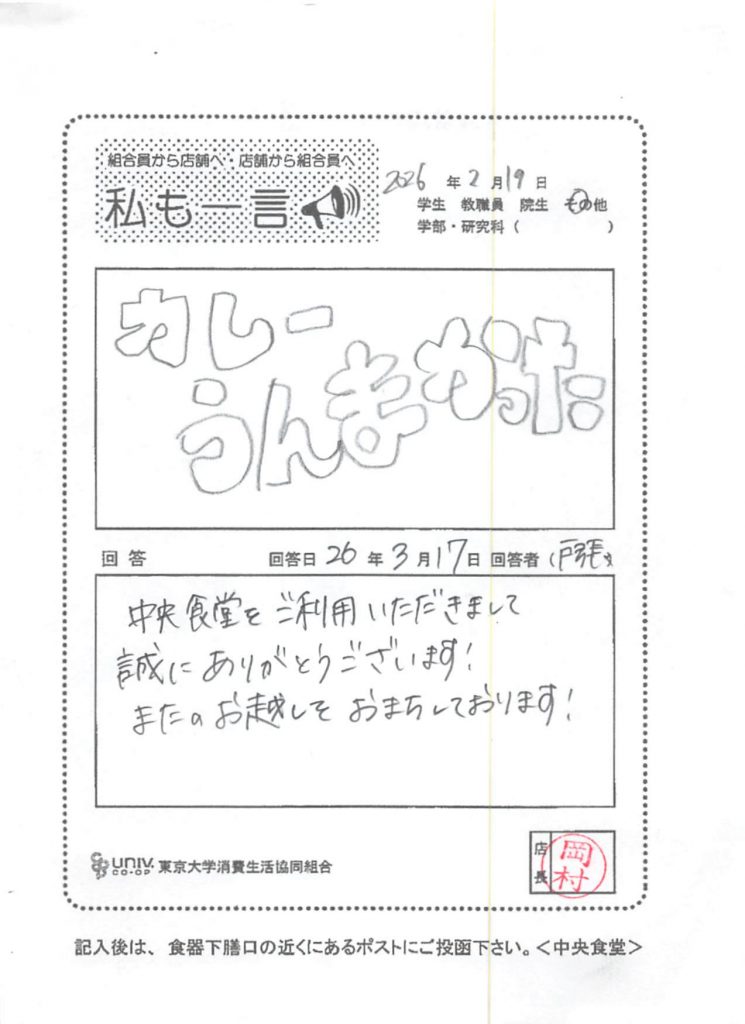 組合員から店舗へ・店舗から組合員へ
私も一言
2026 年 2 月 19 日
学生 教職員 院生 その他
学部・研究科( )
カレー
うんまかった
回答 回答日 26 年 3 月 17 日 回答者(戸張)
中央食堂をご利用いただきまして
誠にありがとうございます!
またのお越しを おまちしております!
店長
岡村
UNIV. CO-OP 東京大学消費生活協同組合
記入後は、食器下膳口の近くにあるポストにご投函下さい。<中央食堂>